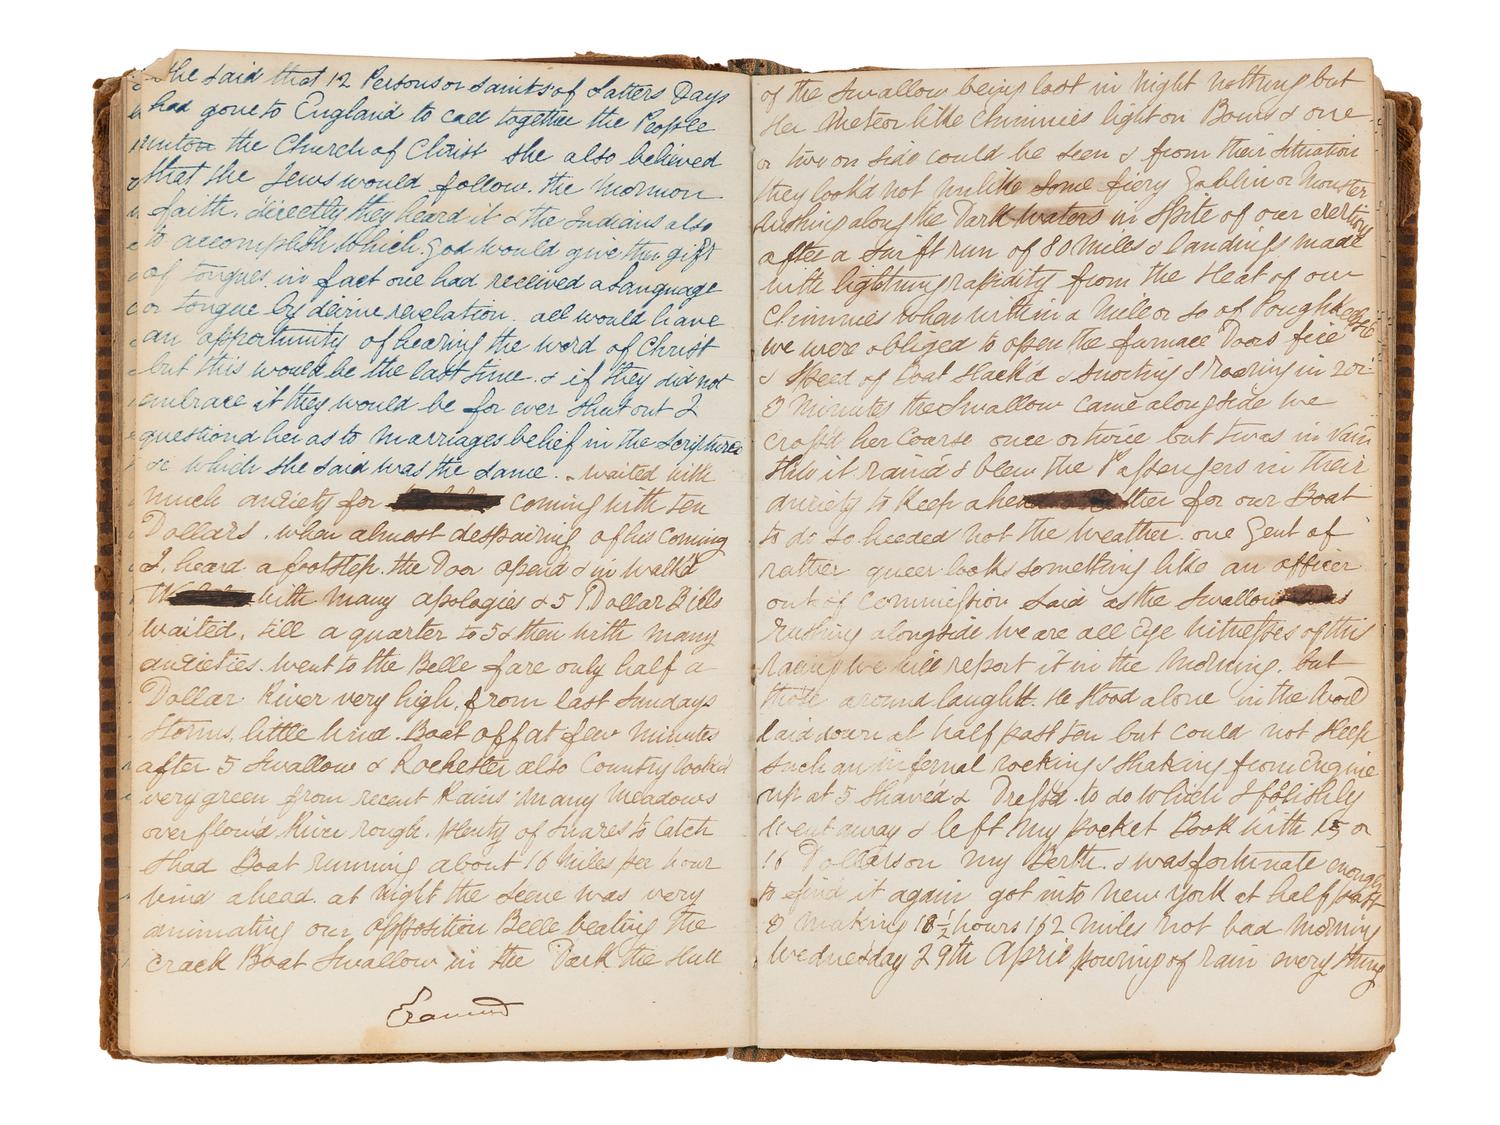 She said that 12 Persons or Saints of Latters Days
had gone to England to call together the People
unto the Church of Christ she also believed
that the Jews would follow. the Mormon
faith. directly they heard it & the Indians also
to accomplish which. God would give then gift
of tongues. in fact one had received a Language
or tongue by divine revelation. all would have
an opportunity of hearing the word of Christ
but this would be the last time. & if they did not
embrace it they would be for ever shut out I
questiond her as to marriages belief in the Scriptures
&c which she said was the same. - waited with
much anxiety for coming with ten
Dollars. when almost despairing of his coming
I. heard a footstep. the Door opend & in walkd
with many apologies & 5 1 Dollar Bills
waited, till a quarter to 5 & then with many
anxieties. went to the Belle fare only half a
Dollar River very high. from last Sundays
Storms. little wind. Boat off at few minutes
after 5 Swallow & Rochester also Country look'd
very green from recent Rains many meadows
overflow'd. River rough. plenty of snares to catch
Shad Boat running about 16 Miles per hour
wind ahead. at Night the scene was very
animating our opposition Belle beating the
crack Boat Swallow in the Dark the Hull
of the Swallow being lost in Night nothing but
Her Meteor like Chimnies light on Bows & one
or two on side could be seen & from their situation
they look'd not unlike some fiery Goblin or Monster
rushing along the Dark waters in spite of our exertions
after a swift run of 80 Miles & landings made
with lightning rapidity from the Heat of our
Chimnies when within a Mile or so of Poughkeepsie
we were obliged to open the furnace Doors fire
& Speed of Boat slack'd & snorting & Roaring in 2 or
3 Minutes the Swallow came alongside we
cross'd her Coarse once or twice but twas in vain
tho it raind & blew the Passengers in their
anxiety to keep ahead for our Boat
to do so heeded not the weather. one Gent of
rather queer looks something like an officer
out of Commission said as the Swallow was
rushing alongside we are all Eye Witnesses of this
racing we will report it in the Morning. but
those around laughd. He stood alone in the World
laid down at half past ten but could not Sleep
such an infernal rocking & shaking from Engine
up at 5 Shaved & Dress'd. to do which I foolishly
went away & left my Pocket Book with 15 or
16 Dollars on my Berth. & was fortunate enough
to find it again got into New York at half past
3 making 10½ hours 162 Miles not bad Morning
Wednesday 29th April pouring of rain every thing